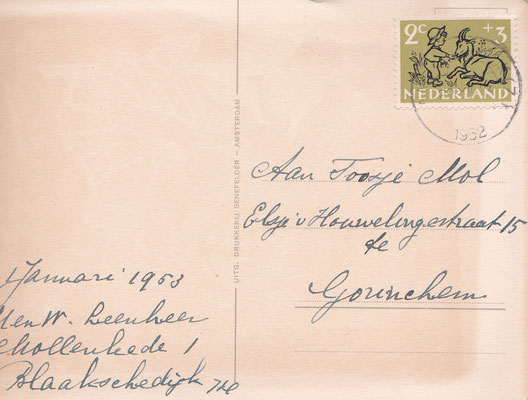 2c +3
NEDERLAND
1952
UITG. DRUKKERIJ SENEFELDER – AMSTERDAM
Aan Toosje Mol
Elsje v Houwelingestraat 15
te
Gorinchem
1 Januari 1953
W. Leenheer
1
Blaakschedijk